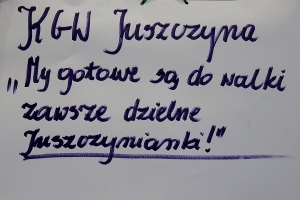 KGW Juszczyna
„My gotowe są do walki
zawsze dzielne
Juszczynianki!"